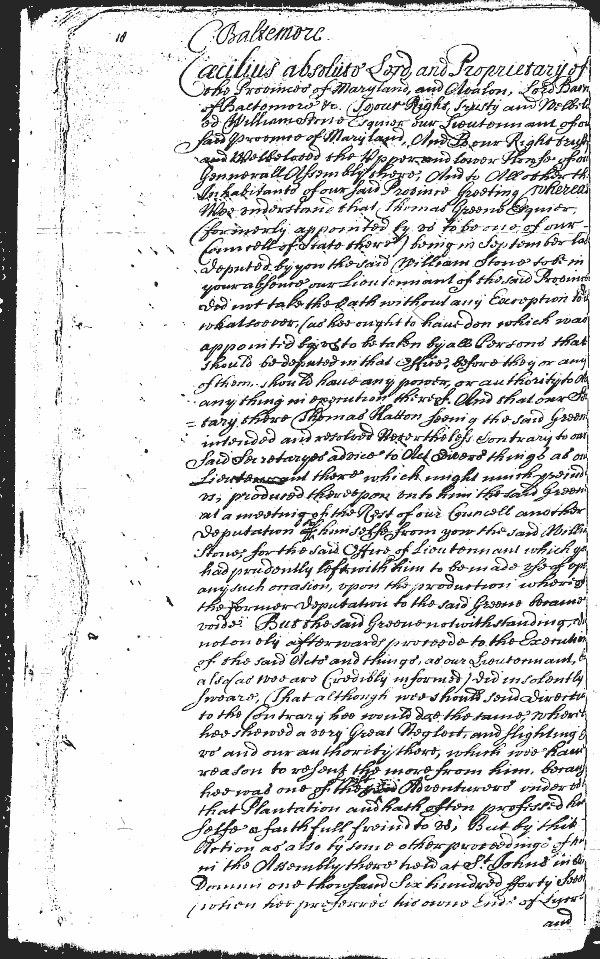 18
C Baltemore
Cæcilius absolute Lord and Proprietary of
the Provinces of Maryland, and Avalon, Lord Baron
of Baltemore &c. To our Right, Trusty and Welbelo
ed William Stone Esquier our Lieutennant of our
said Province of Maryland, And To our Right trusty
and Welbeloved the Upper and lower House of our
Gennerall Assembly there, And to All other the
Inhabitants of our said Province Greeting Whereas
Wee understand that Thomas Greene Esquier
(formerly appointed by vs to be one of our
Councell of State there) being in September last
deputed by you the said William Stone to be in
your absence our Lieutennant of the said Province
did not take the Oath without any Exception to
whatsoever, (as hee ought to haue don which was
appointed by vs to be taken by all Persons that
should be deputed in that Office, before they or any
of them should haue any power, or authority to do
any thing in execution thereof. And that our Se
=tary there Thomas Hatton seeing the said Greene
intended and resolved Nevertheless Contrary to our
said Secretaryes advice to Act divers things as our
Lieutennant there which might much preiud
vs, produced thereupon vnto him the said Greene
at a meeting of the Rest of our Councell another
deputation of himselfe from you the said William
Stone, for the said Office of Lieutennant which you
had prudently left with him to be made vse of vpon
any such occasion, vpon the production whereof
the former deputation to the said Greene became
voide. But the said Greene notwithstanding, did
not onely afterwards proceede to the Execution
of the said Acts and things, as our Lieutennant, &
also (as wee are Credibly informed) did insolently
sweare, That although wee should send directio
to the Contrary hee would doe the same, wherein
hee shewed a very Great Neglect, and slighting of
vs and our authority there, which wee haue
reason to resent the more from him, because
hee was one of the Adventurers vnder vs
that Plantation and hath often professed him
selfe a faithfull freind to vs, But by this
Action as also by some other proceedings of his
in the Assembly there held at St. Johns in
Domini one thousand Six hundred fforty Seven
(when hee preferred his owne Ends of Lucre
and